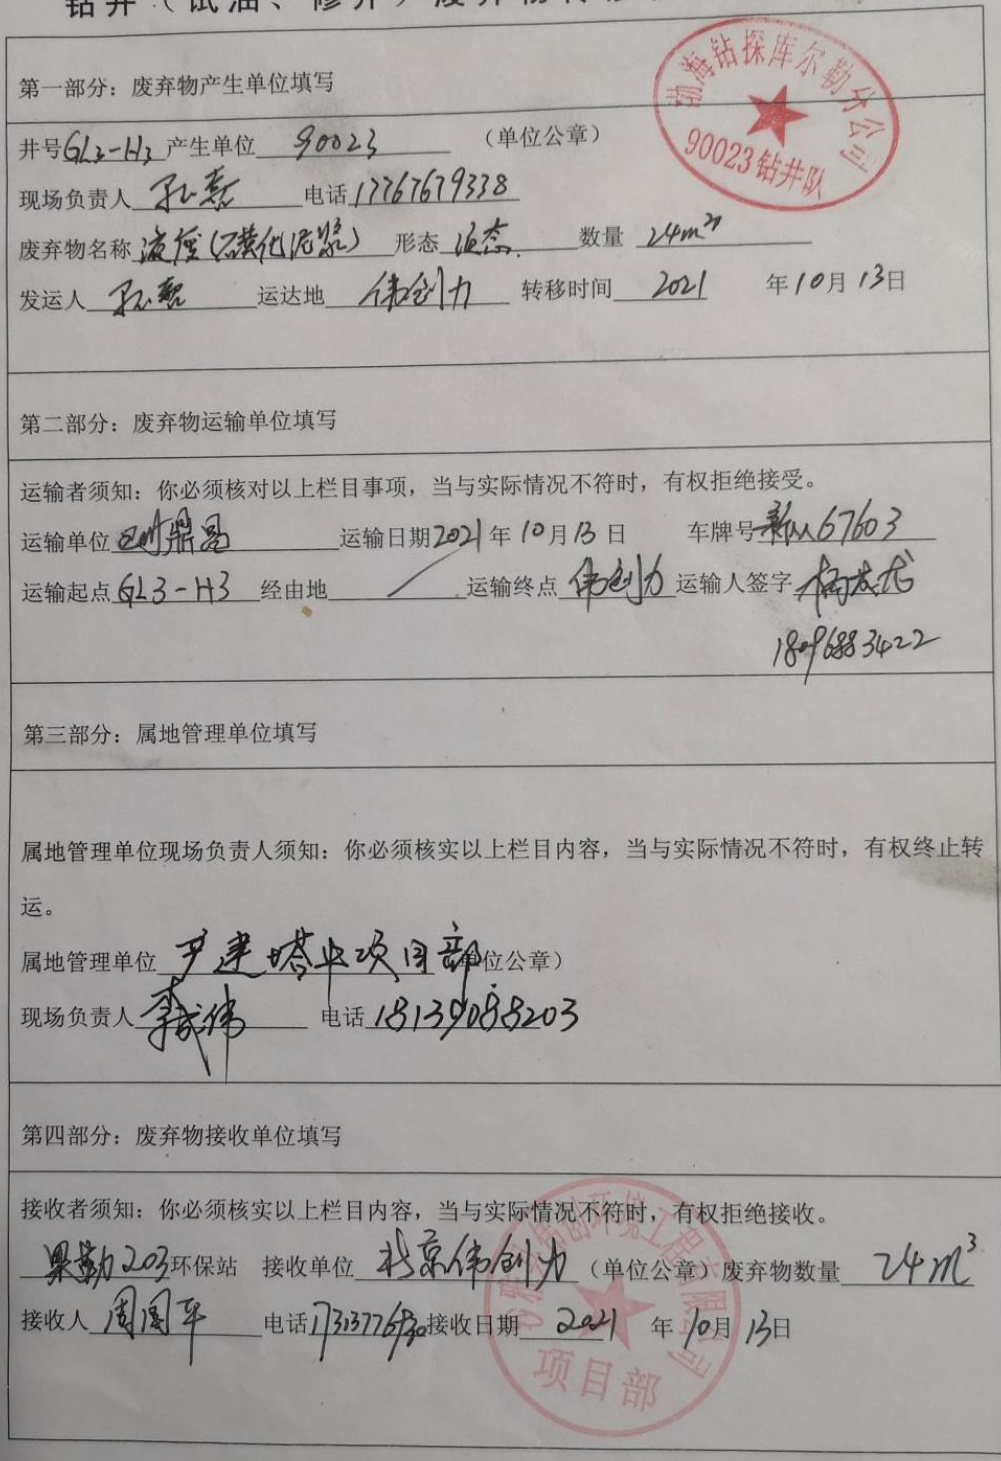 钻井（试油、修井）废弃物转移
第一部分：废弃物产生单位填写
渤海钻探库尔勒分公司
90023钻井队
井号GL3-H3 产生单位 90023 （单位公章）
现场负责人 电话17767679338
废弃物名称 液废（磺化泥浆） 形态 液态. 数量 24m³
发运人 运达地 伟创力 转移时间 2021 年10月13日
第二部分：废弃物运输单位填写
运输者须知：你必须核对以上栏目事项，当与实际情况不符时，有权拒绝接受。
运输单位 鼎昌 运输日期2021年10月13日 车牌号 新M67603
运输起点 GL3-H3 经由地 运输终点 伟创力 运输人签字
18096883422
第三部分：属地管理单位填写
属地管理单位现场负责人须知：你必须核实以上栏目内容，当与实际情况不符时，有权终止转
运。
属地管理单位 尹建塔北项目部 单位公章）
现场负责人 李成伟 电话 18139088203
第四部分：废弃物接收单位填写
接收者须知：你必须核实以上栏目内容，当与实际情况不符时，有权拒绝接收。
果勒203环保站 接收单位 北京伟创力 （单位公章）废弃物数量 24m³
接收人 周国平 电话 接收日期 2021 年10月13日
环境工程有限公司
项目部